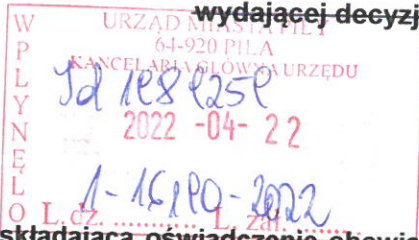 wydającej decyzj
URZĄD MIASTA PIŁY
64-920 PIŁA
KANCELARIA GŁÓWNA URZĘDU
WPŁYNĘŁO
2022 -04- 22
1-16190-2022
L. dz. ............ L. zał. .........
składająca oświadczenie obowią